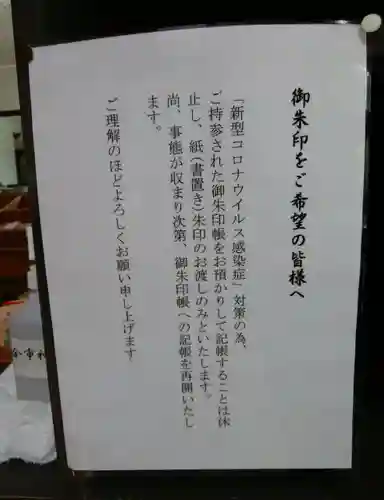 御朱印をご希望の皆様へ
「新型コロナウイルス感染症」対策の為、
ご持参された御朱印帳をお預かりして記帳することは休
止し、紙(書置き)朱印のお渡しのみといたします。
尚、事態が収まり次第、御朱印帳への記帳を再開いたし
ます。
ご理解のほどよろしくお願い申し上げます